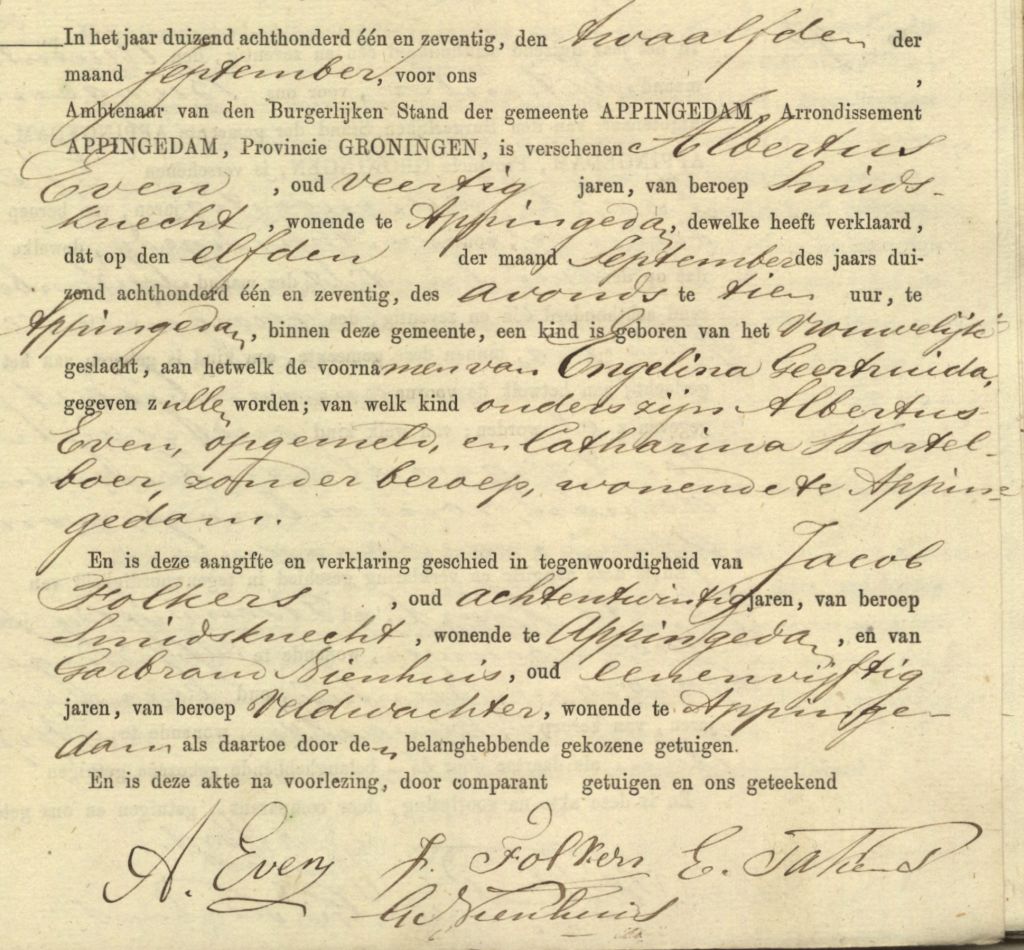 In het jaar duizend achthonderd één en zeventig, den twaalfden der
maand September, voor ons ,
Ambtenaar van den Burgerlijken Stand der gemeente APPINGEDAM, Arrondissement
APPINGEDAM, Provincie GRONINGEN, is verschenen Albertus
Even , oud veertig jaren, van beroep Smids-
knecht , wonende te Appingedam, dewelke heeft verklaard,
dat op den elfden der maand September des jaars dui-
zend achthonderd één en zeventig, des avonds te tien uur, te
Appingedam, binnen deze gemeente, een kind is geboren van het vrouwelijke
geslacht, aan hetwelk de voornamen van Engelina Geertruida,
gegeven zullen worden; van welk kind ouders zijn Albertus
Even, opgemeld, en Catharina Wortel-
boer, zonder beroep, wonende te Appin-
gedam.
En is deze aangifte en verklaring geschied in tegenwoordigheid van Jacob
Folkers , oud achtentwintig jaren, van beroep
Smidsknecht , wonende te Appingedam , en van
Garbrand Nienhuis, oud eenenvijftig
jaren, van beroep Veldwachter, wonende te Appinge-
dam als daartoe door den belanghebbende gekozene getuigen.
En is deze akte na voorlezing, door comparant getuigen en ons geteekend
A. Even J. Folkers E. Takens
G. Nienhuis